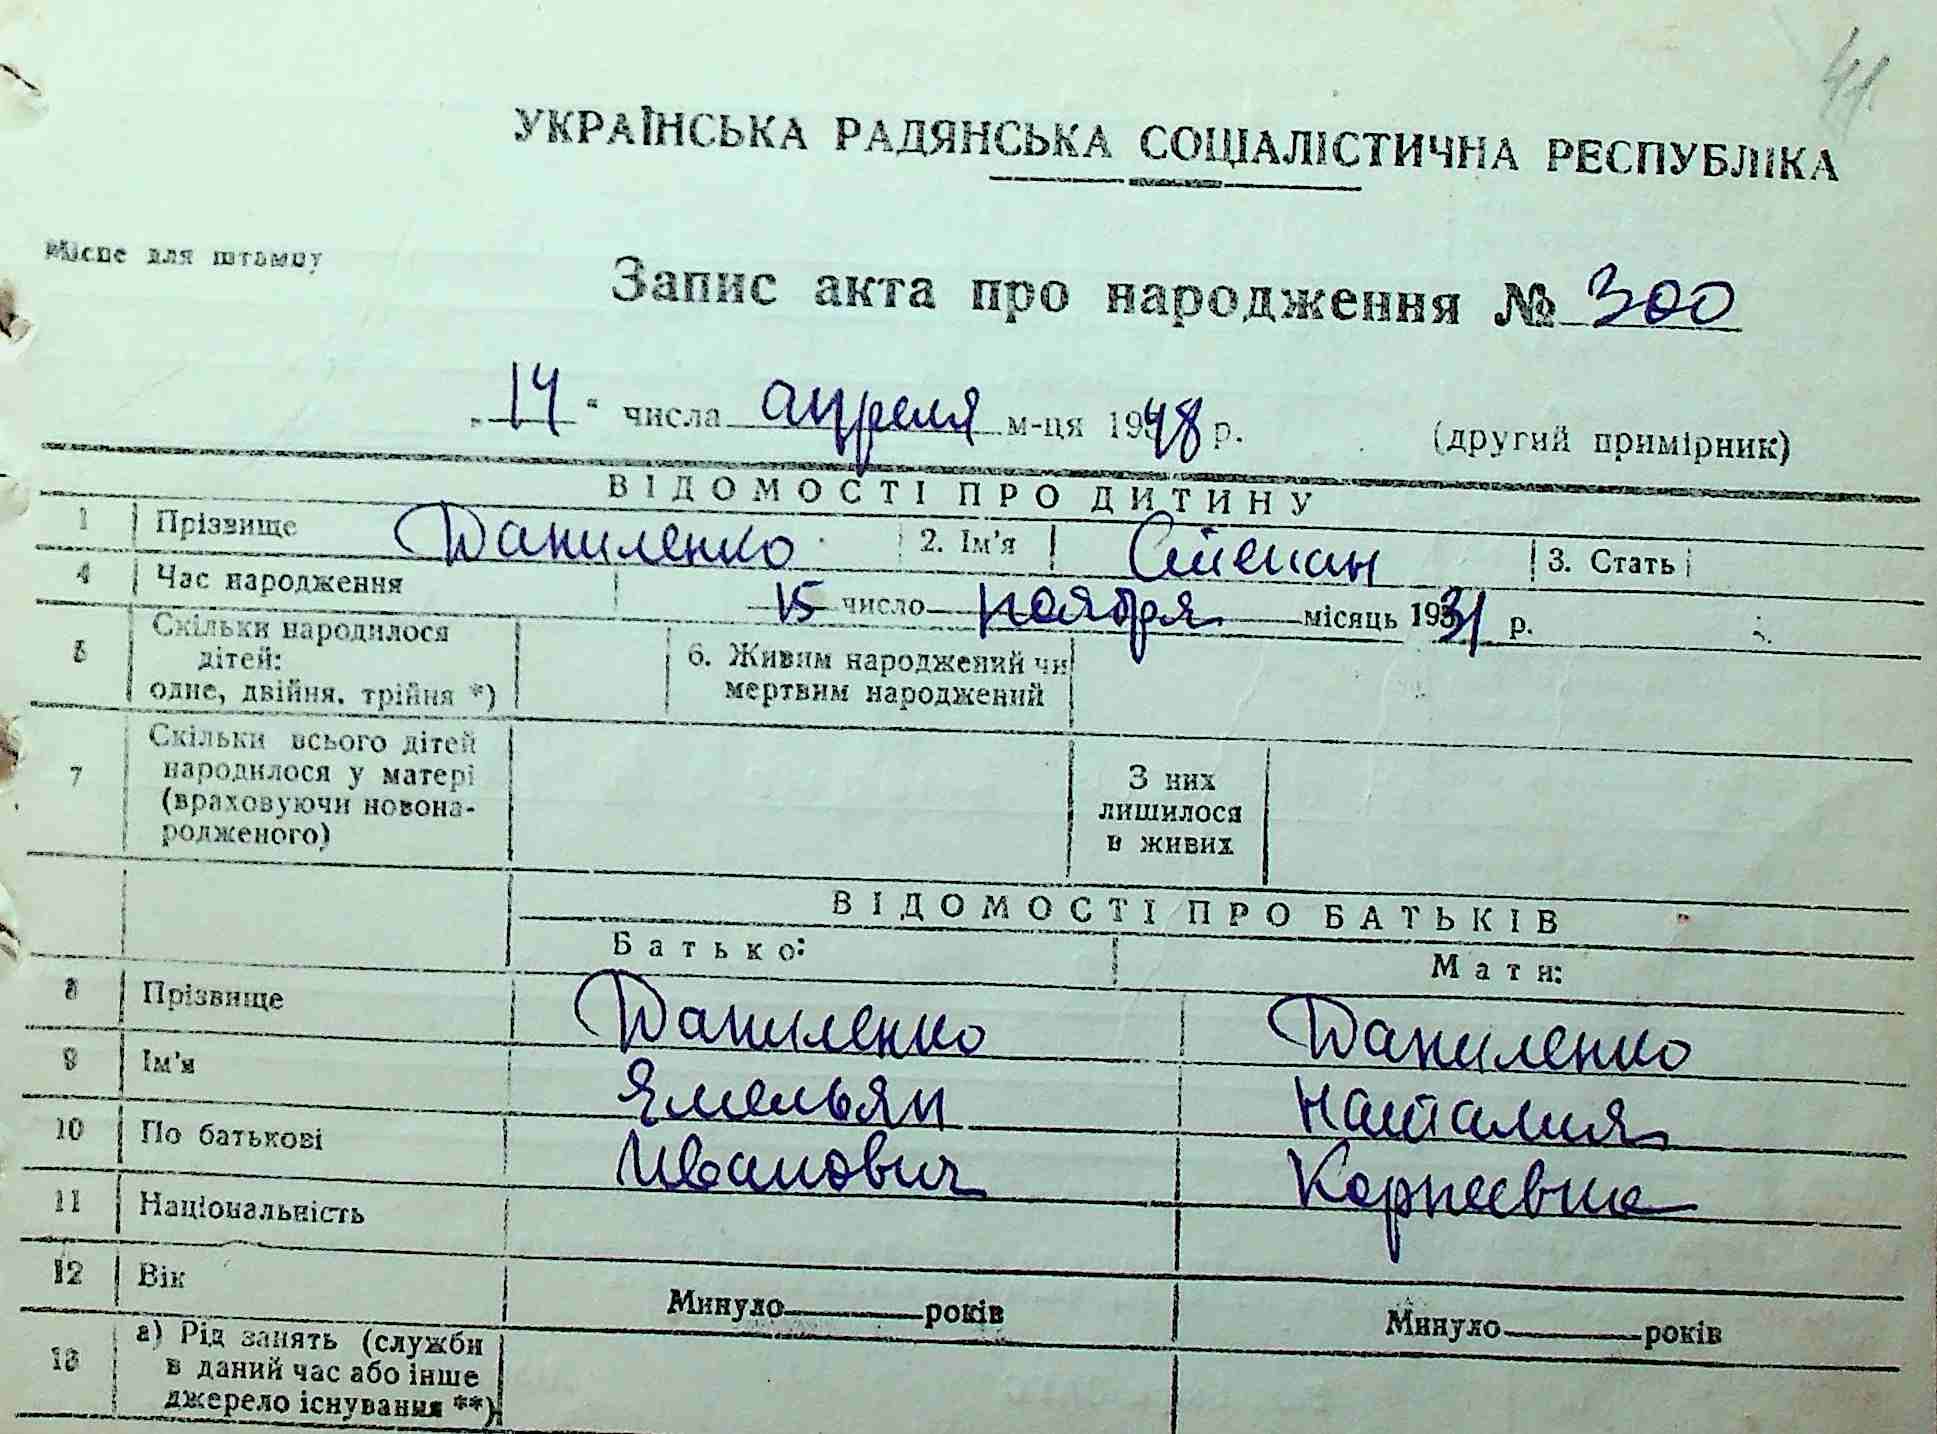 41
УКРАЇНСЬКА РАДЯНСЬКА СОЦІАЛІСТИЧНА РЕСПУБЛІКА
Місце для штампу
Запис акта про народження № 300
„ 14 “ числа апреля м-ця 1948 р. (другий примірник)
ВІДОМОСТІ ПРО ДИТИНУ
1 Прізвище Даниленко 2. Ім'я Степан 3. Стать
4 Час народження 15 число ноября місяць 1931 р.
5 Скільки народилося
дітей:
одне, двійня, трійня *)
6. Живим народжений чи
мертвим народжений
7 Скільки всього дітей
народилося у матері
(враховуючи новона-
родженого)
З них
лишилося
в живих
ВІДОМОСТІ ПРО БАТЬКІВ
Батько: Мати:
8 Прізвище Даниленко Даниленко
9 Ім'я Емельян Наталия
10 По батькові Иванович Корнеевна
11 Національність
12 Вік Минуло років Минуло років
13 а) Рід занять (служби
в даний час або інше
джерело існування **)